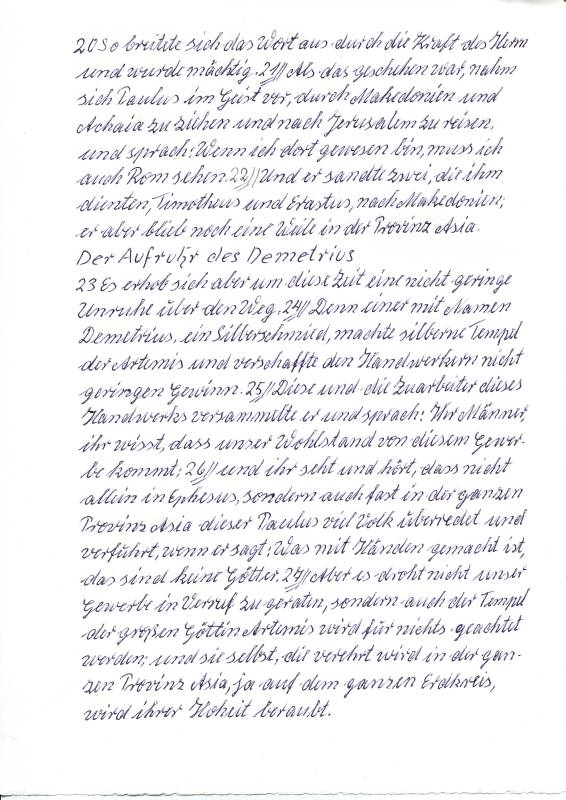 20 So breitete sich das Wort aus durch die Kraft des Herrn
und wurde mächtig. 21// Als das geschehen war, nahm
sich Paulus im Geist vor, durch Makedonien und
Achaia zu ziehen und nach Jerusalem zu reisen,
und sprach: Wenn ich dort gewesen bin, muss ich
auch Rom sehen. 22// Und er sandte zwei, die ihm
dienten, Timotheus und Erastus, nach Makedonien;
er aber blieb noch eine Weile in der Provinz Asia.
Der Aufruhr des Demetrius
23 Es erhob sich aber um diese Zeit eine nicht geringe
Unruhe über den Weg. 24// Denn einer mit Namen
Demetrius, ein Silberschmied, machte silberne Tempel
der Artemis und verschaffte den Handwerkern nicht
geringen Gewinn. 25// Diese und die Zuarbeiter dieses
Handwerks versammelte er und sprach: Ihr Männer,
ihr wisst, dass unser Wohlstand von diesem Gewer-
be kommt; 26// und ihr seht und hört, dass nicht
allein in Ephesus, sondern auch fast in der ganzen
Provinz Asia dieser Paulus viel Volk überredet und
verführt, wenn er sagt: Was mit Händen gemacht ist,
das sind keine Götter. 27// Aber es droht nicht unser
Gewerbe in Verruf zu geraten, sondern auch der Tempel
der großen Göttin Artemis wird für nichts geachtet
werden; und sie selbst, die verehrt wird in der gan-
zen Provinz Asia, ja auf dem ganzen Erdkreis,
wird ihrer Hoheit beraubt.